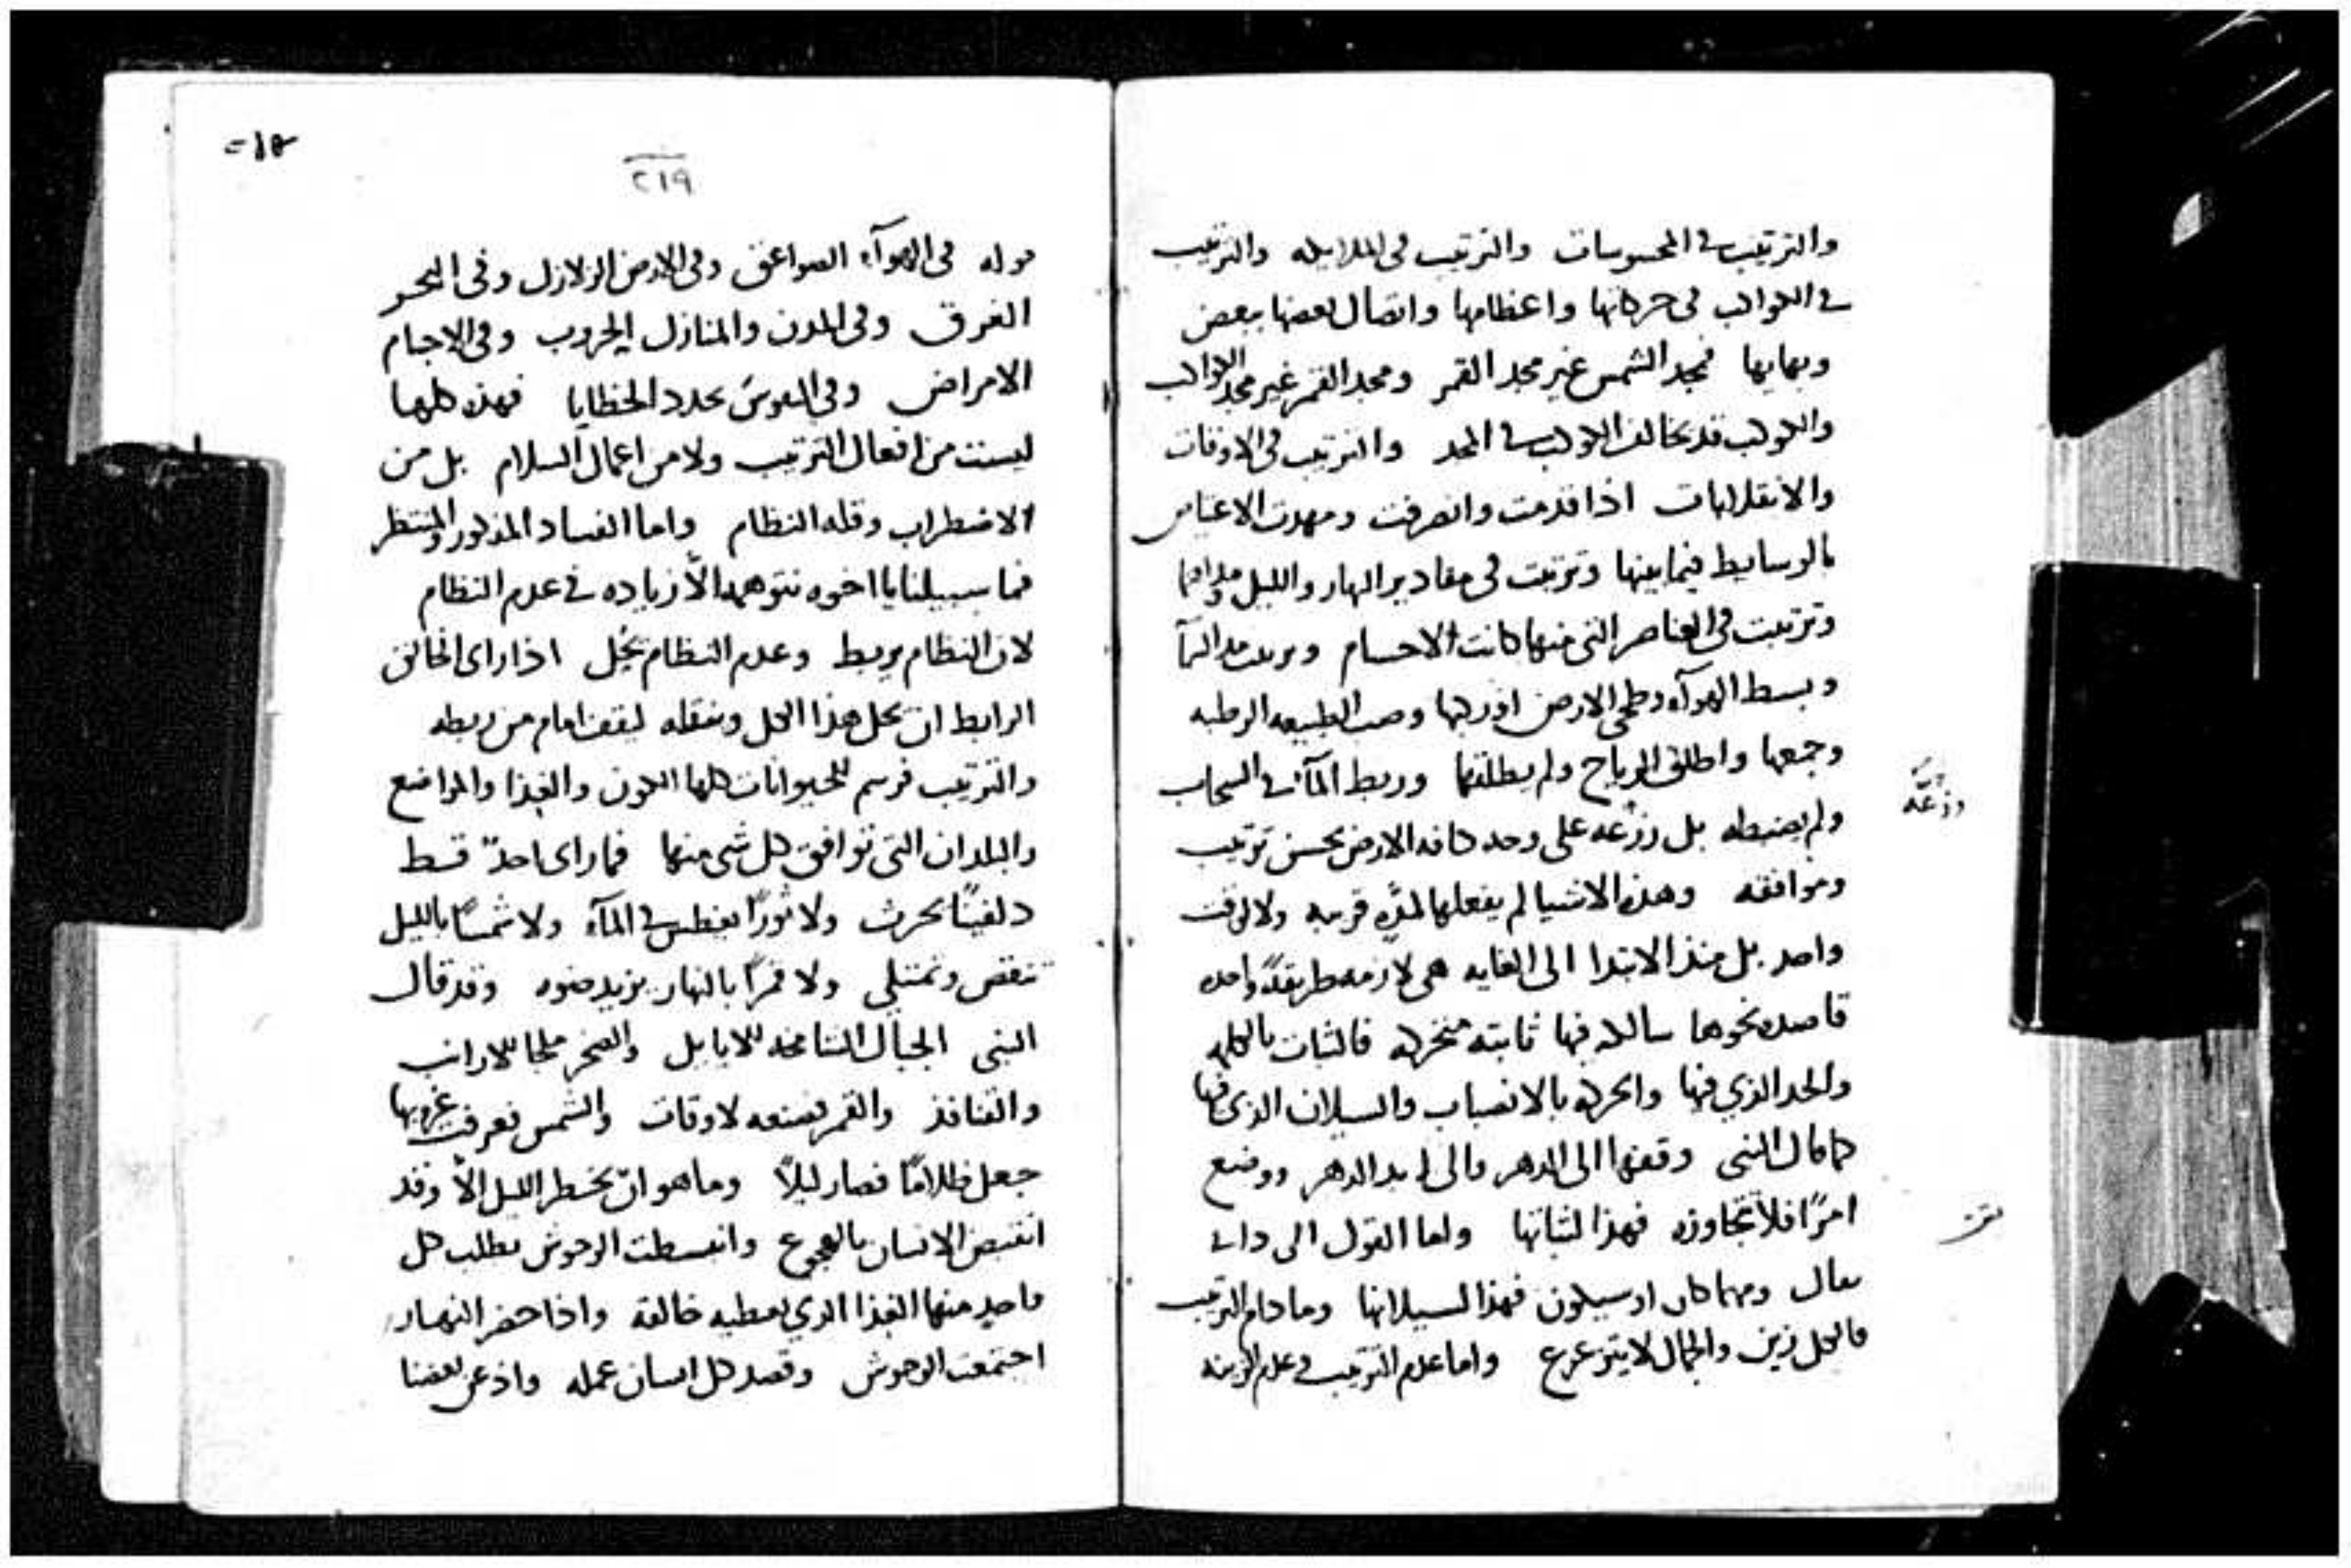 والترتيب في المحسوسات والترتيب في الملايكه والترتيب
في الكواكب في حركاتها واعظامها واتصال بعضها ببعض
وبهايها فمجد الشمس غير مجد القمر ومجد القمر غير مجد الكواكب
والكوكب قد يخالف الكوكب في المجد والترتيب في الاوقات
والانقلابات اذا قدمت وانصرفت ومهدت
بالوسايط فيما بينها وترتبت في مقادير النهار والليل
وترتبت في العناصر التي منها كانت الاجسام
وبسط الهوآء وطحى الارض وصب الطبيعه الرطبه
وجمعها واطلق الرياح ولم يطلقها وربط المآ في السحاب
ولم يضبطه بل وزعه على وجه كافه الارض بحسن ترتيب
وموافقه وهذه الاشيا لم يفعلها لمده قريبه ولا لوقت
واحد بل منذ الابتدا الى الغايه هي لازمه طريقةً واحده
قاصده نحوها سالكه فيها ثابته متحركه فالثبات بالكلمه
والحد الذي فيها والحركه بالانصباب والسيلان الذي فيها
كما قال النبي وقفها الى الدهر والى ابد الدهر ووضع
امرًا فلا تتجاوزه فهذا لثباتها واما القول الى
ومهما كان او سيكون فهذا لسيلانها وما دام الترتيب
فالكل زين والجمال لا يتزعزع واما عدم الترتيب وعدم الزينه
وزعه
٢١٩
في الهوآء الصواعق وفي الارض الزلازل وفي البحر
الغرق وفي المدن والمنازل الحروب وفي الاجسام
الامراض وفي النفوس الخطايا فهذه كلها
ليست من افعال الترتيب ولا من اعمال السلام بل من
الاضطراب وقله النظام واما الفساد المذكور والمنتظر
فما سبيلنا يا اخوه نتوهمه الّا زياده في عدم النظام
لان النظام يربط وعدم النظام يحُل اذا راى الخالق
الرابط ان يحل هذا الكل وينقله ليقف امام من ربطه
والترتيب فرسم للحيوانات كلها الكون والغذا والمواضع
والبلدان التي توافق كل شي منها فما راى احدٌ قط
دلفينًا يحرث ولا ثورًا يغطس في المآء ولا شمسًا بالليل
تنقص وتمتلي ولا قمرًا بالنهار يزيد ضوه وقد قال
النبي الجبال الشامخه للايايل والصخر ملجا للارانب
والقنافذ والقمر صنعه لاوقات والشمس تعرف غروبها
جعل ظلامًا فصار ليلًا وما هو ان يخطر الليل الّا وقد
انقبض الانسان بالهجوع وانبسطت الوحوش تطلب كل
واحدٍ منها الغذا الذي يعطيه خالقه واذا حضر النهار
اجتمعت الوحوش وقصد كل انسان عمله واذعن بعضنا